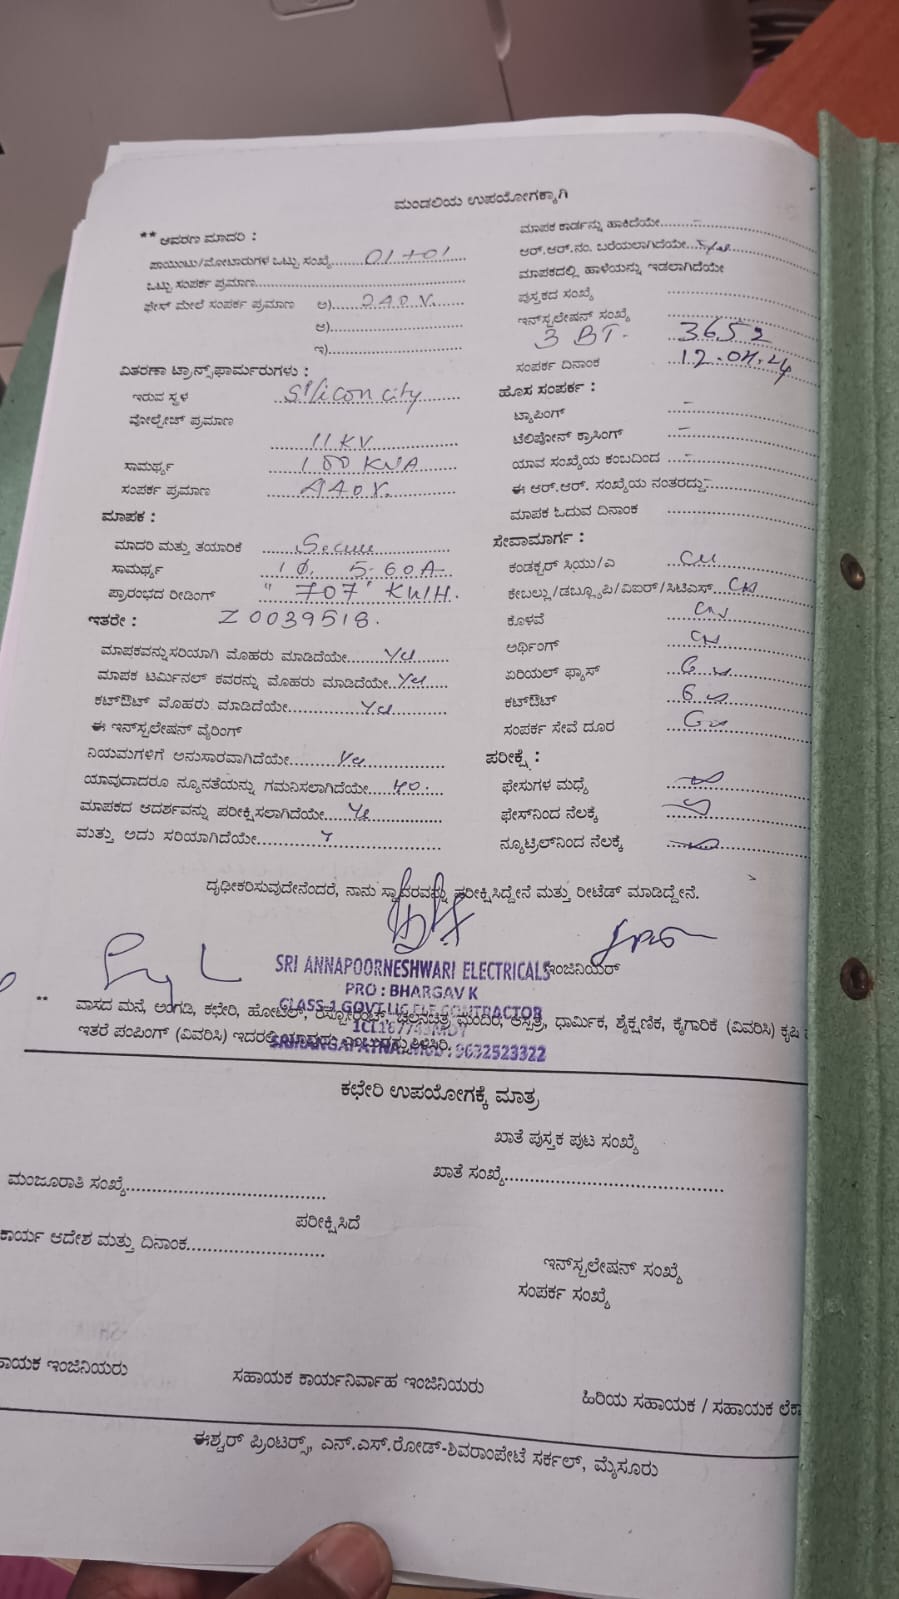 ಮಂಡಲಿಯ ಉಪಯೋಗಕ್ಕಾಗಿ
** ಆವರಣ ಮಾದರಿ :
ಪಾಯಿಂಟು/ಮೋಟಾರುಗಳ ಒಟ್ಟು ಸಂಖ್ಯೆ......01+01
ಒಟ್ಟು ಸಂಪರ್ಕ ಪ್ರಮಾಣ
ಫೇಸ್ ಮೇಲೆ ಸಂಪರ್ಕ ಪ್ರಮಾಣ ಅ).....240 V.
ಆ)
ಇ)
ವಿತರಣಾ ಟ್ರಾನ್ಸ್‌ಫಾರ್ಮರುಗಳು :
ಇರುವ ಸ್ಥಳ Silicon city
ವೋಲ್ಟೇಜ್ ಪ್ರಮಾಣ
11 KV
ಸಾಮರ್ಥ್ಯ 100 KVA
ಸಂಪರ್ಕ ಪ್ರಮಾಣ 440V.
ಮಾಪಕ :
ಮಾದರಿ ಮತ್ತು ತಯಾರಿಕೆ Secure
ಸಾಮರ್ಥ್ಯ 1Ø. 5-60A
ಪ್ರಾರಂಭದ ರೀಡಿಂಗ್ "707" KWH.
ಇತರೇ : Z0039518.
ಮಾಪಕವನ್ನು ಸರಿಯಾಗಿ ಮೊಹರು ಮಾಡಿದೆಯೇ......Yes
ಮಾಪಕ ಟರ್ಮಿನಲ್ ಕವರನ್ನು ಮೊಹರು ಮಾಡಿದೆಯೇ...Yes
ಕಟ್‌ಔಟ್ ಮೊಹರು ಮಾಡಿದೆಯೇ......Yes
ಈ ಇನ್‌ಸ್ಟಲೇಷನ್ ವೈರಿಂಗ್
ನಿಯಮಗಳಿಗೆ ಅನುಸಾರವಾಗಿದೆಯೇ......Yes
ಯಾವುದಾದರೂ ನ್ಯೂನತೆಯನ್ನು ಗಮನಿಸಲಾಗಿದೆಯೇ....No.
ಮಾಪಕದ ಆದರ್ಶವನ್ನು ಪರೀಕ್ಷಿಸಲಾಗಿದೆಯೇ....Yes
ಮತ್ತು ಅದು ಸರಿಯಾಗಿದೆಯೇ
ಮಾಪಕ ಕಾರ್ಡನ್ನು ಹಾಕಿದೆಯೇ......-
ಆರ್.ಆರ್.ನಂ. ಬರೆಯಲಾಗಿದೆಯೇ
ಮಾಪಕದಲ್ಲಿ ಹಾಳೆಯನ್ನು ಇಡಲಾಗಿದೆಯೇ
ಪುಸ್ತಕದ ಸಂಖ್ಯೆ
ಇನ್‌ಸ್ಟಲೇಷನ್ ಸಂಖ್ಯೆ
3 BT. 3652
ಸಂಪರ್ಕ ದಿನಾಂಕ
ಹೊಸ ಸಂಪರ್ಕ :
ಟ್ಯಾಪಿಂಗ್ -
ಟೆಲಿಫೋನ್ ಕ್ರಾಸಿಂಗ್ -
ಯಾವ ಸಂಖ್ಯೆಯ ಕಂಬದಿಂದ -
ಈ ಆರ್.ಆರ್. ಸಂಖ್ಯೆಯ ನಂತರದ್ದು -
ಮಾಪಕ ಓದುವ ದಿನಾಂಕ
ಸೇವಾಮಾರ್ಗ :
ಕಂಡಕ್ಟರ್ ಸಿಯು/ಎ
ಕೇಬಲ್ಲು/ಡಬ್ಲ್ಯೂಪಿ/ವಿಐಆರ್/ಸಿಟಿಎಸ್
ಕೊಳವೆ
ಅರ್ಥಿಂಗ್
ಏರಿಯಲ್ ಫ್ಯಾಸ್
ಕಟ್‌ಔಟ್
ಸಂಪರ್ಕ ಸೇವೆ ದೂರ
ಪರೀಕ್ಷೆ :
ಫೇಸುಗಳ ಮಧ್ಯೆ
ಫೇಸ್‌ನಿಂದ ನೆಲಕ್ಕೆ
ನ್ಯೂಟ್ರಲ್‌ನಿಂದ ನೆಲಕ್ಕೆ
ದೃಢೀಕರಿಸುವುದೇನೆಂದರೆ, ನಾನು ಸ್ಥಾವರವನ್ನು ಪರೀಕ್ಷಿಸಿದ್ದೇನೆ ಮತ್ತು ರೀಟೆಡ್ ಮಾಡಿದ್ದೇನೆ.
SRI ANNAPOORNESHWARI ELECTRICALS
ಇಂಜಿನಿಯರ್
PRO : BHARGAV K
CLASS-1 GOVT CONTRACTOR
: 9632523322
** ವಾಸದ ಮನೆ, ಅಂಗಡಿ, ಕಛೇರಿ, ಹೋಟೆಲ್, ರೆಸ್ಟೋರೆಂಟ್, ಚಲನಚಿತ್ರ ಮಂದಿರ, ಆಸ್ಪತ್ರೆ, ಧಾರ್ಮಿಕ, ಶೈಕ್ಷಣಿಕ, ಕೈಗಾರಿಕೆ (ವಿವರಿಸಿ) ಕೃಷಿ
ಇತರೆ ಪಂಪಿಂಗ್ (ವಿವರಿಸಿ) ಇದರಲ್ಲಿ ತಿಳಿಸಿರಿ.
ಕಛೇರಿ ಉಪಯೋಗಕ್ಕೆ ಮಾತ್ರ
ಖಾತೆ ಪುಸ್ತಕ ಪುಟ ಸಂಖ್ಯೆ
ಮಂಜೂರಾತಿ ಸಂಖ್ಯೆ
ಖಾತೆ ಸಂಖ್ಯೆ
ಪರೀಕ್ಷಿಸಿದೆ
ಕಾರ್ಯ ಆದೇಶ ಮತ್ತು ದಿನಾಂಕ
ಇನ್‌ಸ್ಟಲೇಷನ್ ಸಂಖ್ಯೆ
ಸಂಪರ್ಕ ಸಂಖ್ಯೆ
ಇಂಜಿನಿಯರು
ಸಹಾಯಕ ಕಾರ್ಯನಿರ್ವಾಹ ಇಂಜಿನಿಯರು
ಹಿರಿಯ ಸಹಾಯಕ / ಸಹಾಯಕ
ಈಶ್ವರ್ ಪ್ರಿಂಟರ್ಸ್, ಎನ್.ಎಸ್.ರೋಡ್-ಶಿವರಾಂಪೇಟೆ ಸರ್ಕಲ್, ಮೈಸೂರು